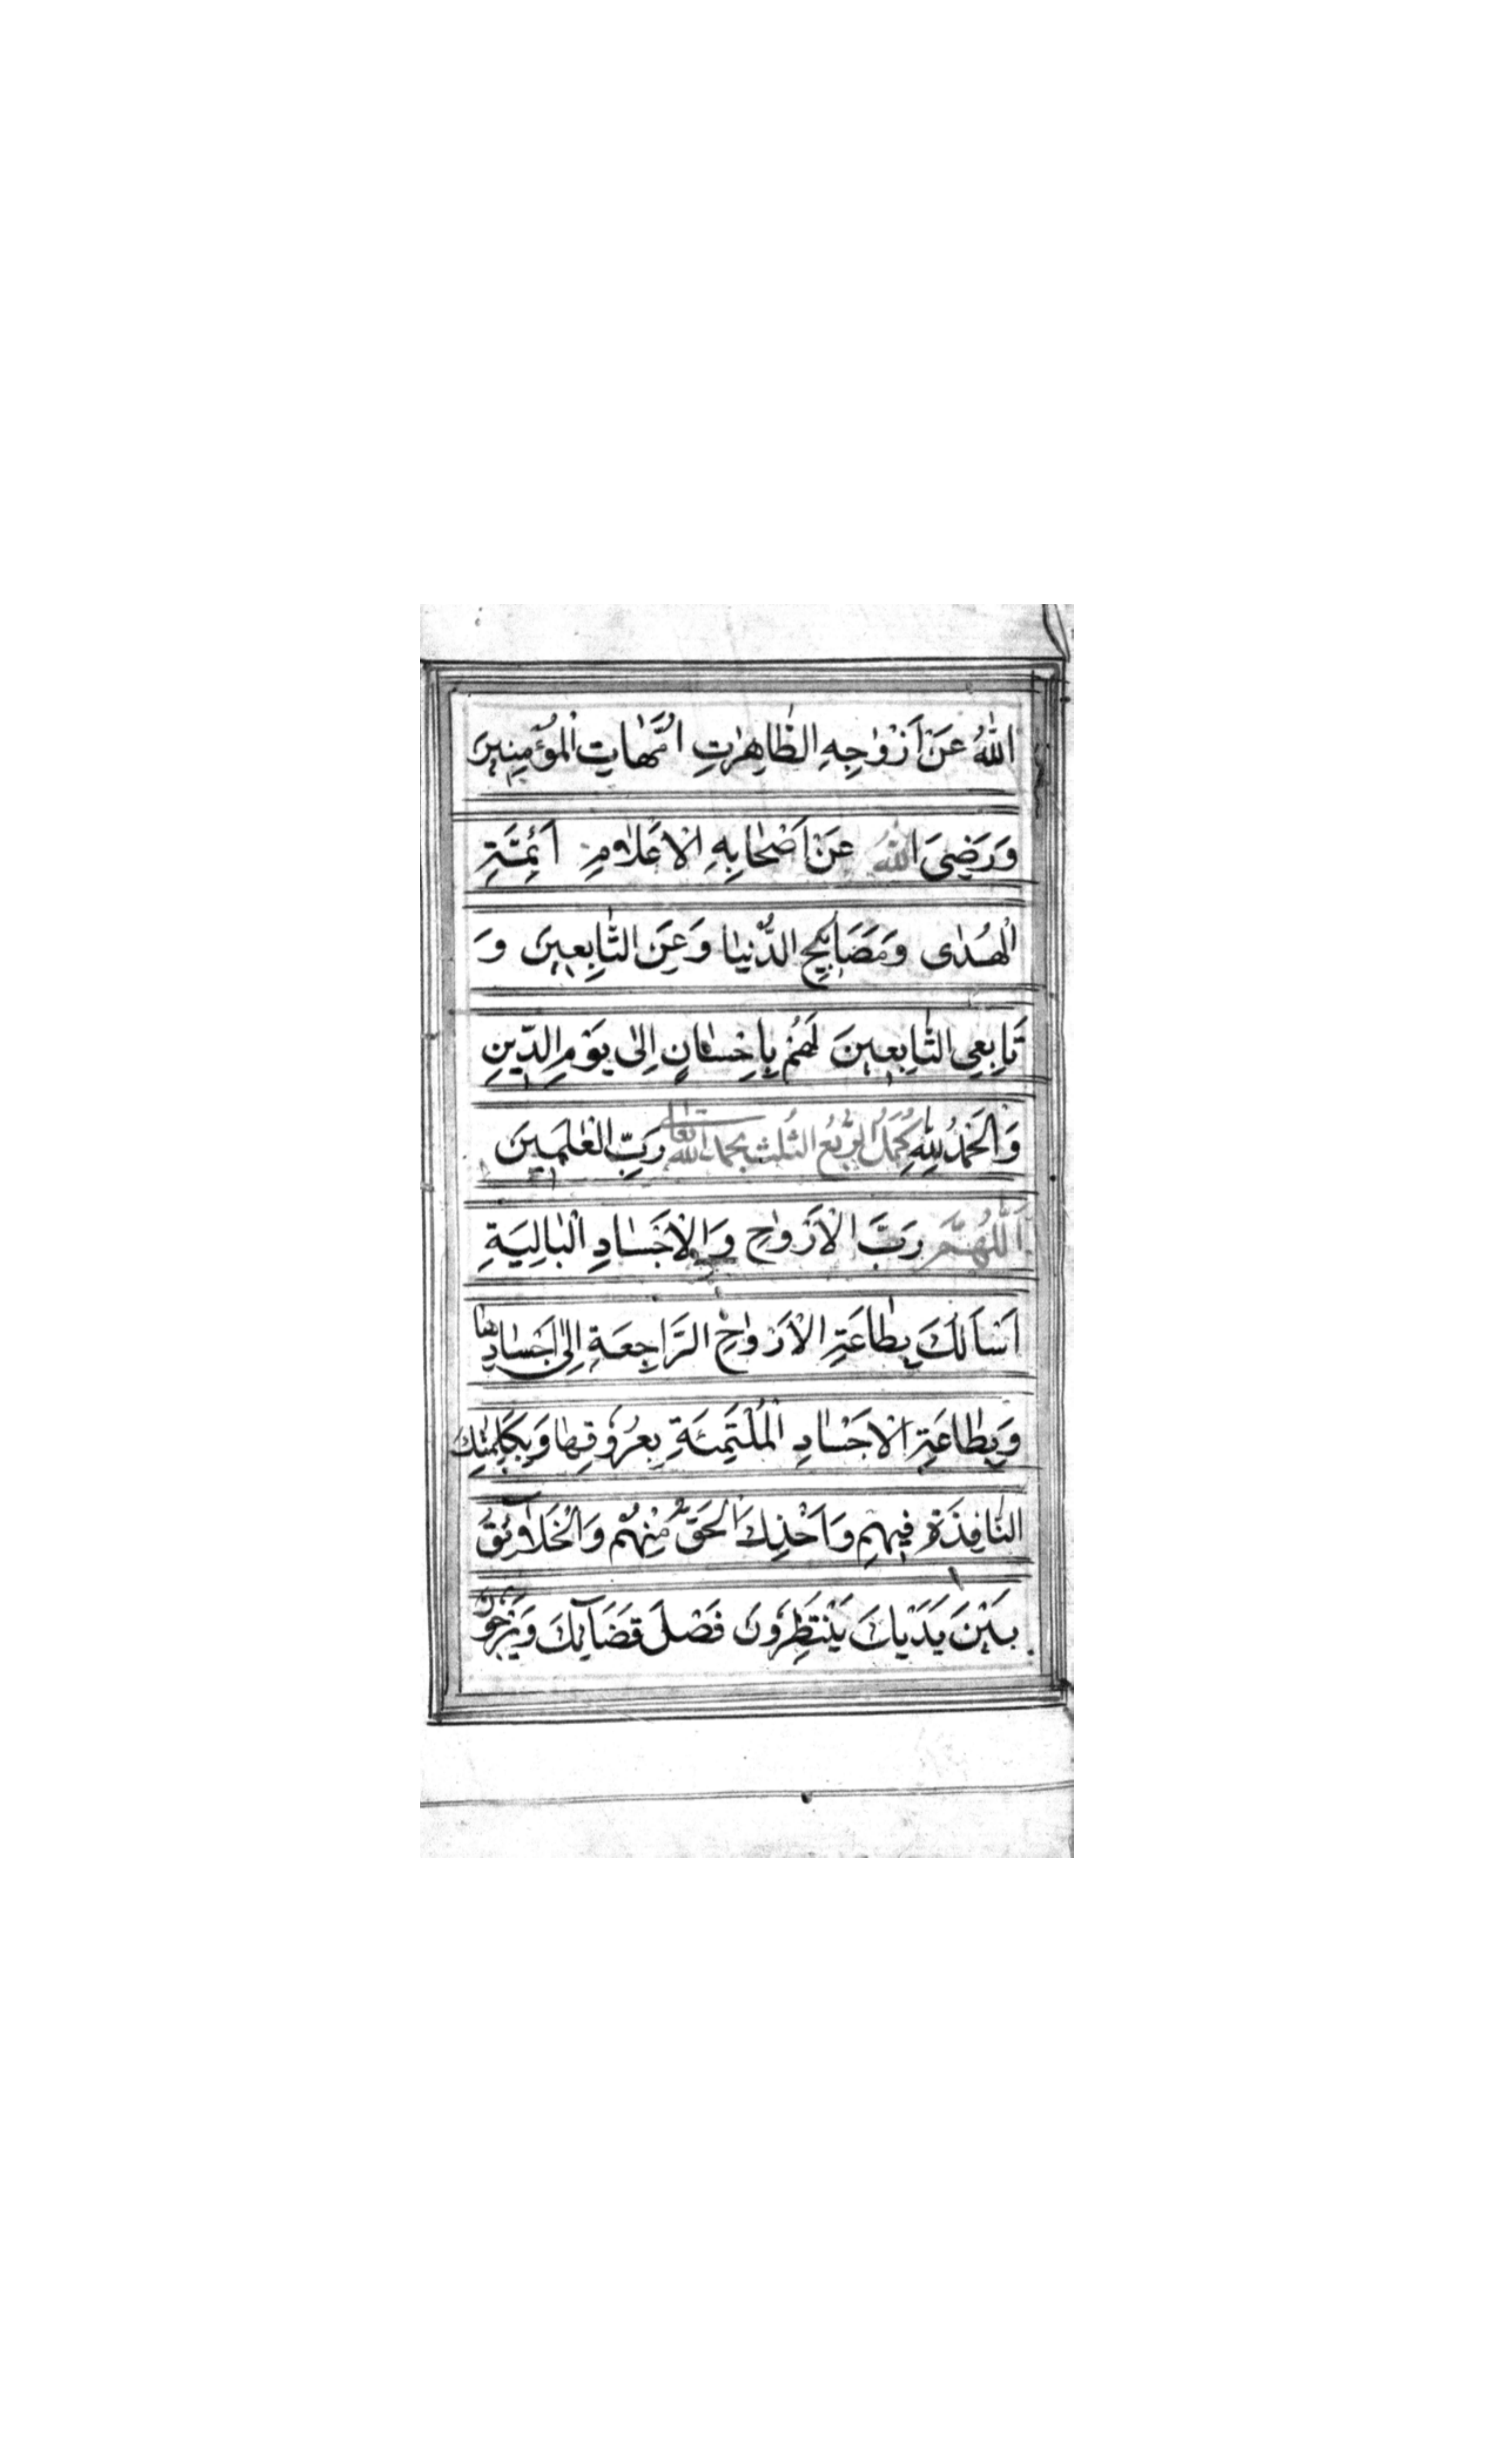 اللّٰهُ عَنْ اَزْوٰاجِهِ الطّٰاهِرٰاتِ اُمَّهٰاتِ الْمُؤْمِنِينَ
وَرَضِيَ اللّٰهُ عَنْ اَصْحٰابِهِ الْاَعْلٰامِ اَئِمَّةِ
الْهُدٰى وَمَصَابِيحِ الدُّنْيٰا وَعَنِ التّٰابِعِينَ وَ
تَابِعِي التّٰابِعِينَ لَهُمْ بِاِحْسٰانٍ اِلٰى يَوْمِ الدِّينِ
وَالْحَمْدُ لِلّٰهِ كُمِّلَ الرُّبُعُ الثُلث بحمد الله تعالى رَبِّ الْعٰلَمِينَ
اَللّٰهُمَّ رَبَّ الْاَرْوٰاحِ وَالْاَجْسٰادِ الْبٰالِيَةِ
اَسْاَلُكَ بِطٰاعَةِ الْاَرْوٰاحِ الرَّاجِعَةِ اِلٰى اَجْسٰادِهٰا
وَبِطٰاعَةِ الْاَجْسٰادِ الْمُلْتَئِمَةِ بِعُرُوقِهٰا وَبِكَلِمٰتِكَ
النّٰافِذَةِ فِيهِمْ وَاَخْذِكَ الْحَقَّ مِنْهُمْ وَالْخَلَآئِقُ
بَيْنَ يَدَيْكَ يَنْتَظِرُونَ فَصْلَ قَضَآئِكَ وَيَرْجُونَ